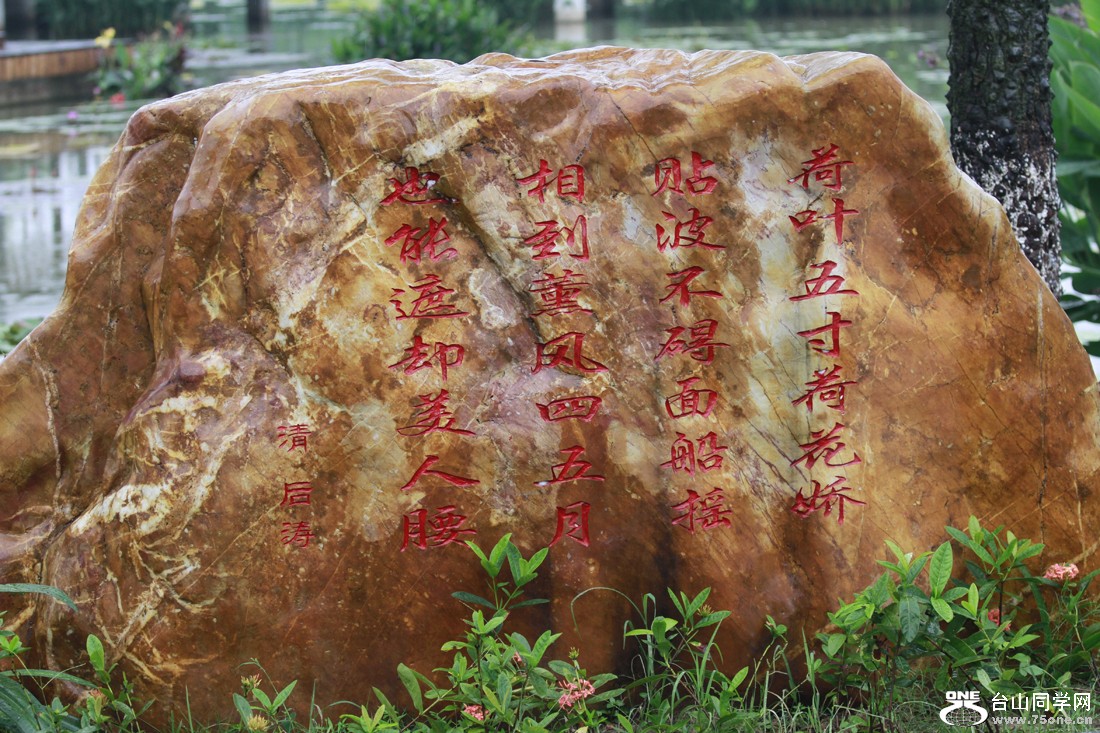 荷叶五寸荷花娇
贴波不碍面船摇
相到薰风四五月
也能遮却美人腰
清 后涛
ONE 台山同学网
www.75one.cn